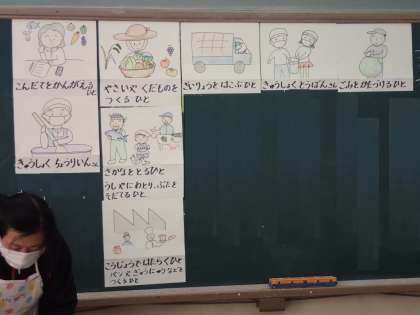 こんだてをかんがえるひと
やさいや くだものを
つくる ひと
ざいりょうを はこぶ ひと
きゅうしょくとうばんさん
ごみをかたづけるひと
きゅうしょく ちょうりいんさん
さかなをとるひと
うしやにわとり、ぶたを
そだてるひと
こうじょうではたらくひと
パンやぎゅうにゅうなどを
つくるひと